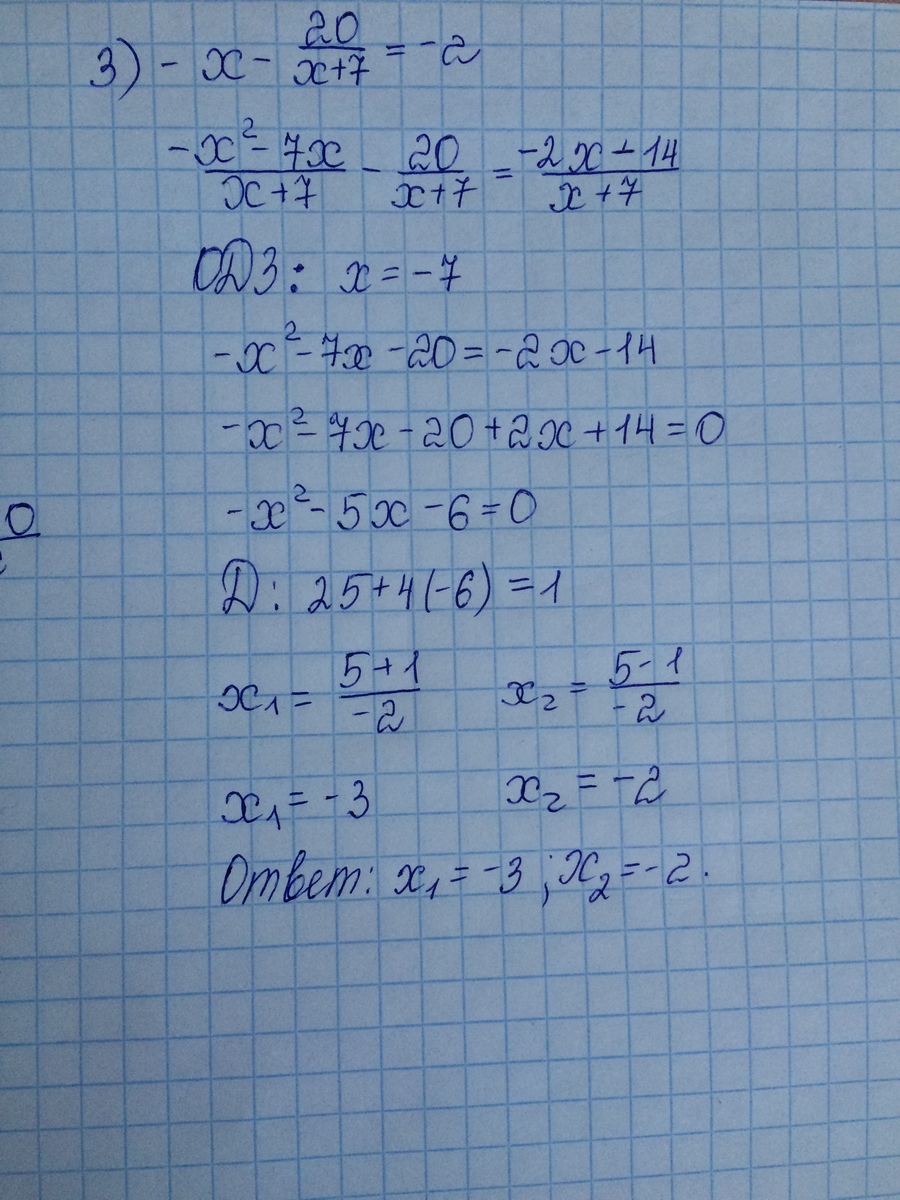 3) - x - 20/(x+7) = -2
(-x² - 7x)/(x+7) - 20/(x+7) = (-2x - 14)/(x+7)
ОДЗ: x = -7
-x² - 7x - 20 = -2x - 14
-x² - 7x - 20 + 2x + 14 = 0
0
-x² - 5x - 6 = 0
D: 25 + 4(-6) = 1
x₁ = (5+1)/(-2) x₂ = (5-1)/(-2)
x₁ = -3 x₂ = -2
Ответ: x₁ = -3 ; x₂ = -2.